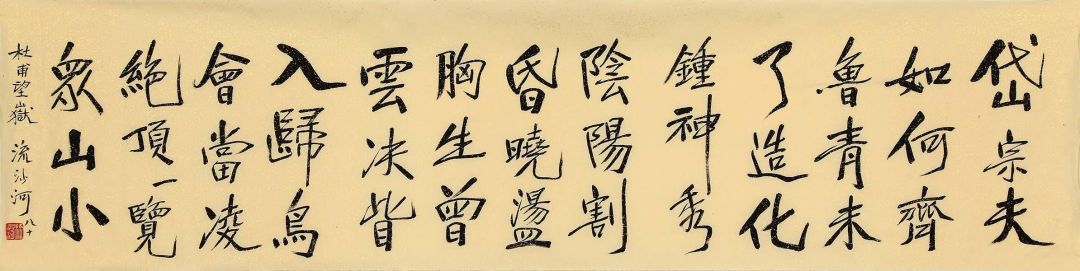 岱宗夫
如何齊
魯青未
了造化
鍾神秀
陰陽割
昏曉盪
胸生曾
雲決眥
入歸鳥
會當凌
絕頂一覽
眾山小
杜甫望嶽 流沙河 八十